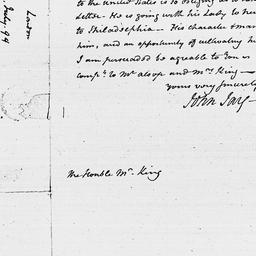 to the United States is so obliging as to
Letter. He is going with his Lady to
to Philadelphia — His character &
him, and an opportunity of cultivating
I am persuaded be agreeable to you
compts. to Mr. alsop and Mrs. King —
yours very sincerely
John Jay —
The Honble Mr. King
London
July. 94